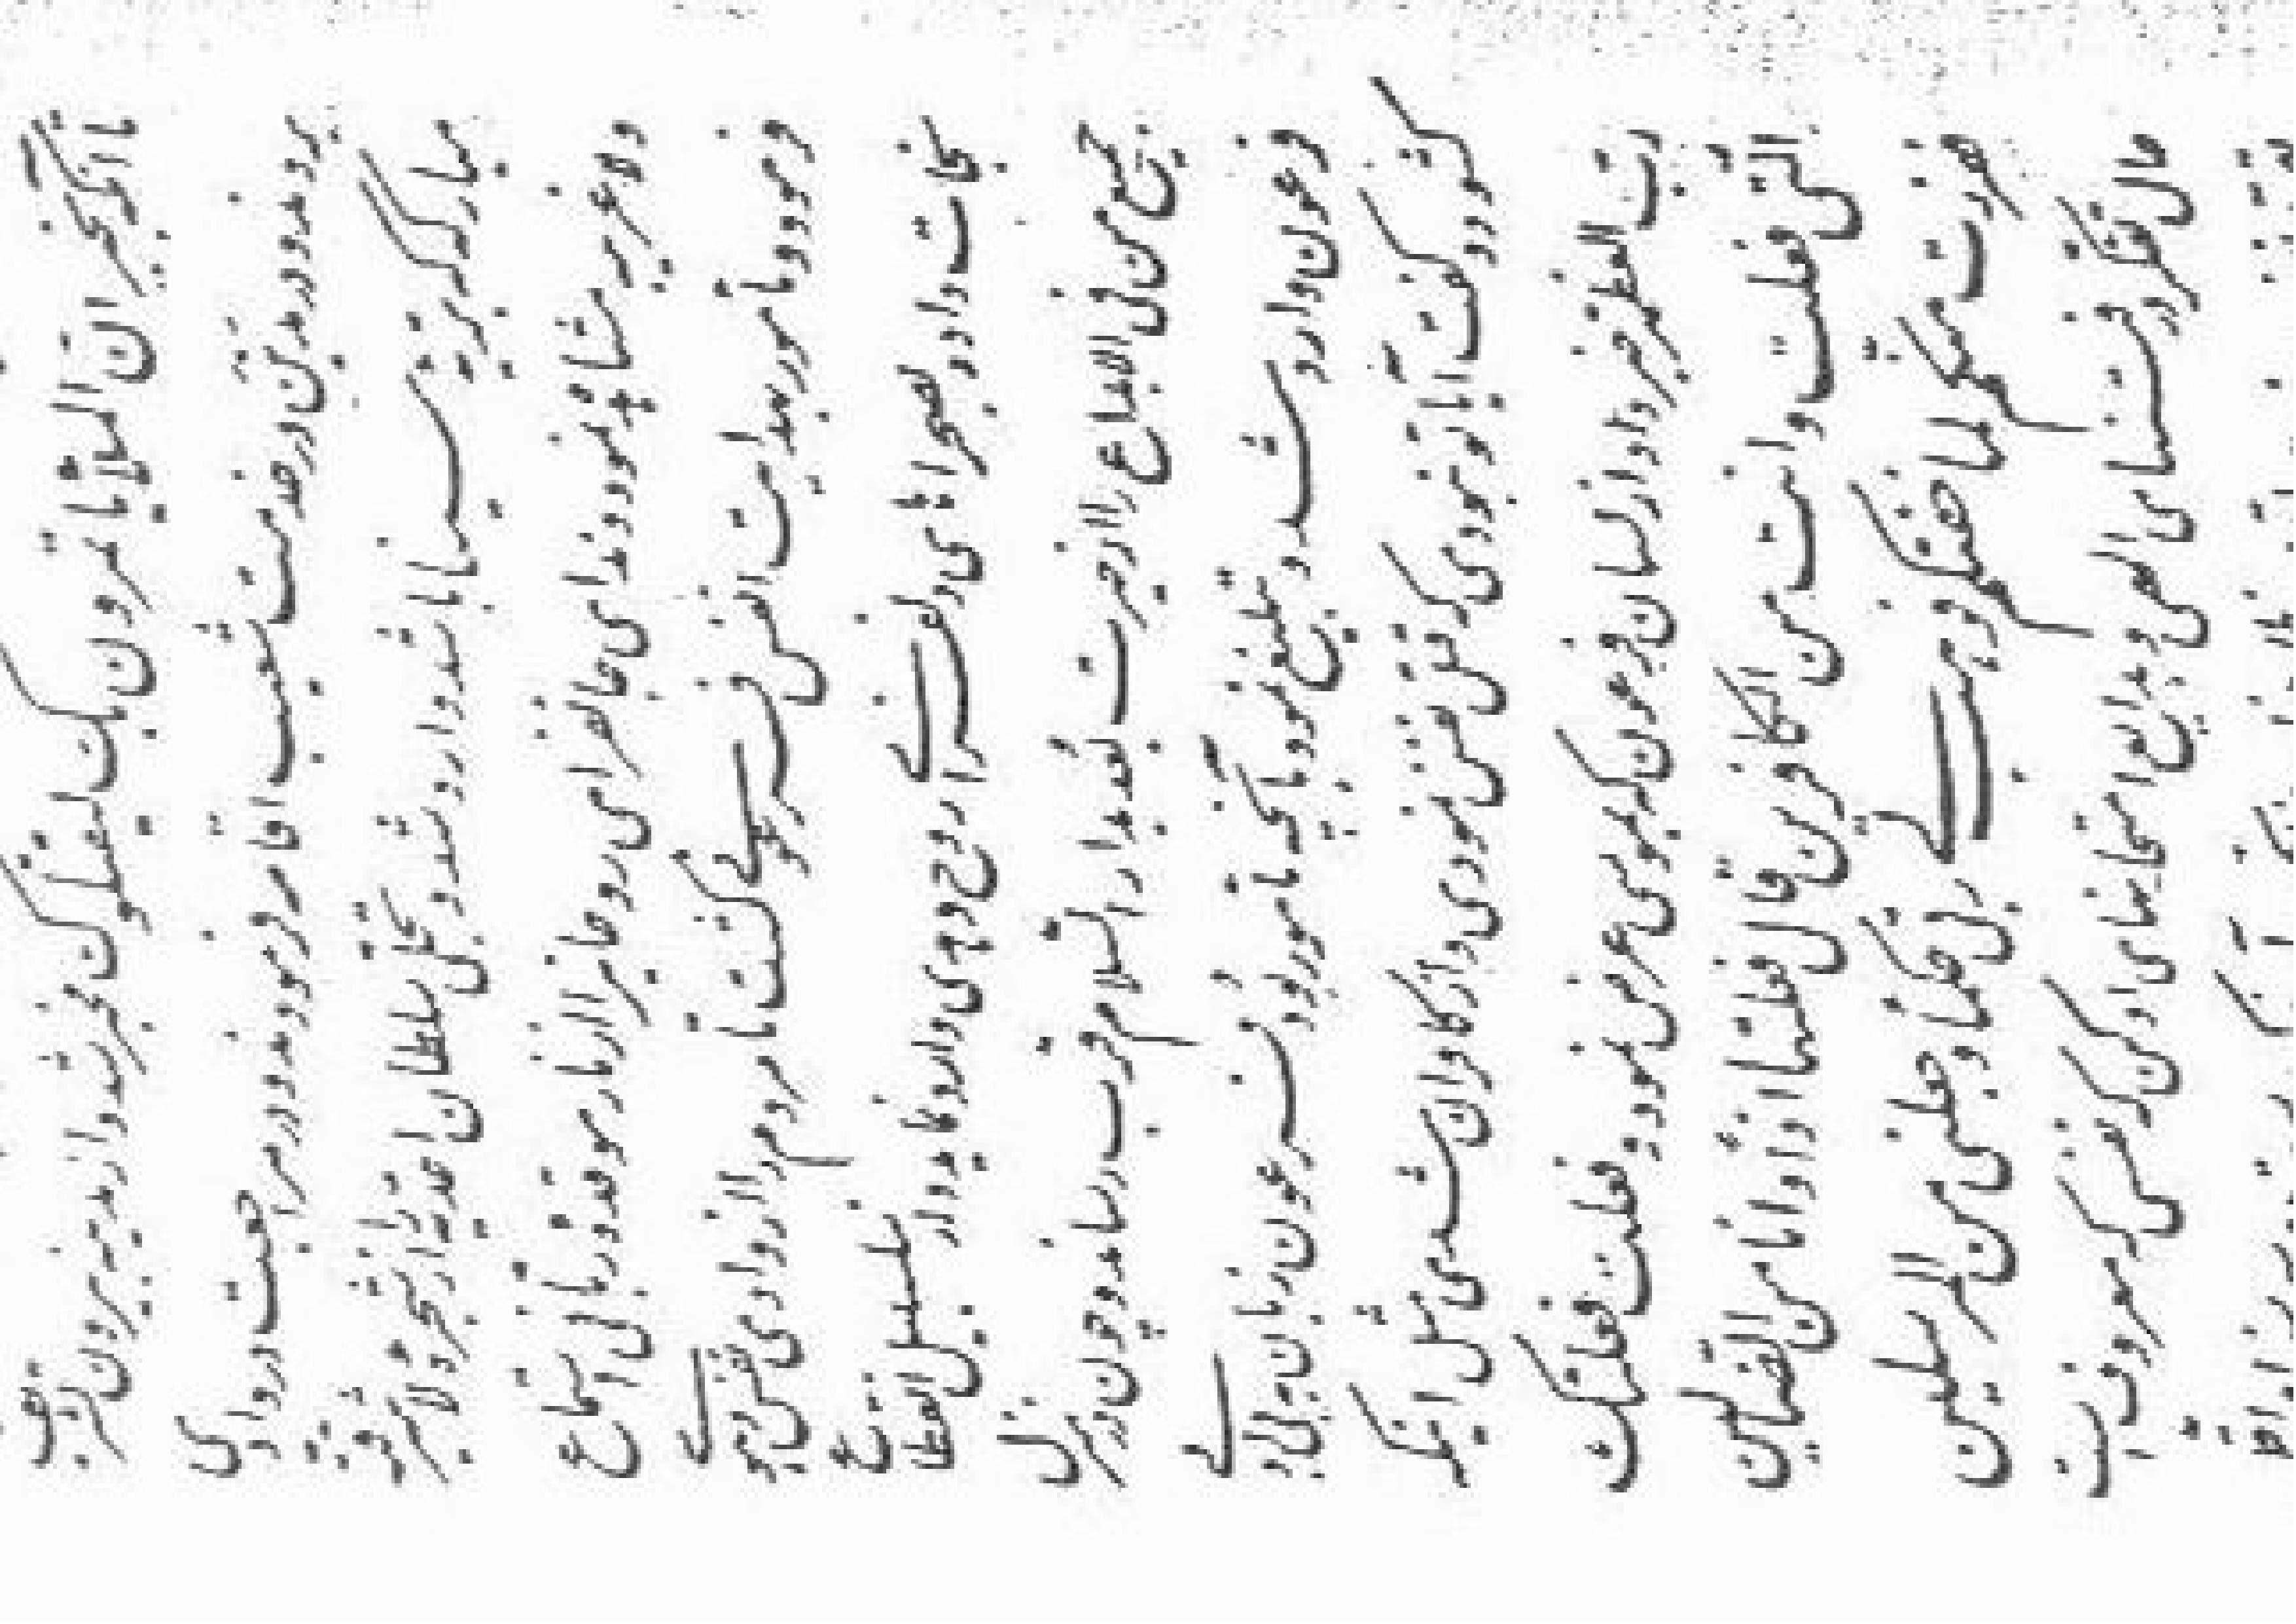 تا آنکه خبر انّ الملأ یأتمرون بک لیقتلوک مخبر شد و از مدینه بیرون تشریف
بردند و در مدین در خدمت شعیب اقامت فرمودند و در مراجعت در وادی
مبارکه که برّیّه سینا باشد وارد شدند و تجلّی سلطان احدیّه را از شجره لا شرقیّه
ولا غربیّه مشاهده نمودند و ندای جانفزای روحانی را از نار موقده ربّانی استماع
فرمودند و مأمور بهدایت انفس فرعونی گشتند تا مردم را از وادی نفس و هوی
نجات داده بصحراهای دلگشای روح و هدی وارد نماید و از سلسبیل انقطاع
جمیع من فی الابداع را از حیرت بُعد بدار السّلام قرب رساند و چون در منزل
فرعون وارد شد و تبلیغ نمود بآنچه مأمور بود فرعون زبان بی ادبی
گشوده گفت آیا تو نبودی که قتل نفس نمودی و از کافران شدی مثل اینکه
ربّ العظمة خبر داد از لسان فرعون که بموسی عرض نمود و فعلت فعلتک
الّتی فعلت و انت من الکافرین قال فعلتها اذاً و انا من الضّالّین
ففررت منکم لمّا خفتکم فوهب لی ربّی حکماً و جعلنی من المرسلین
حال تفکّر در فتنه‌های الهی و بدایع امتحانهای او کن که نفسی که معروف است